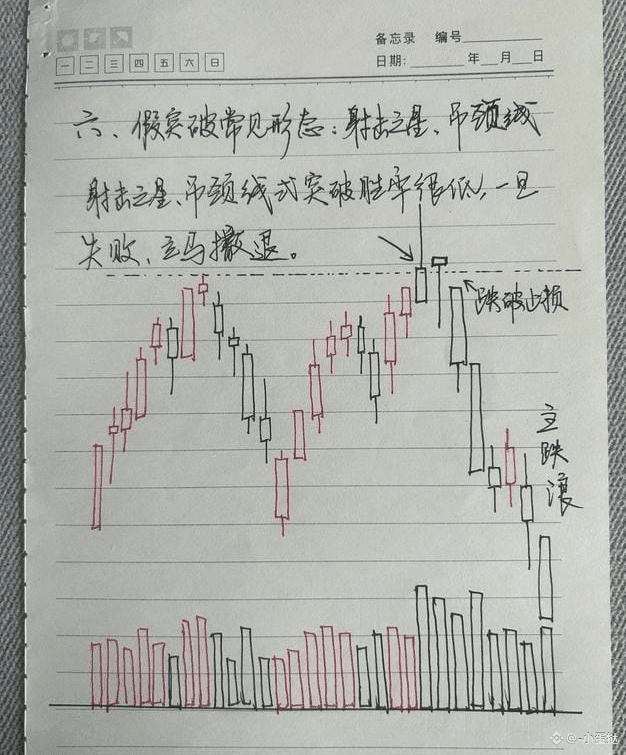 备忘录 编号
一 二 三 四 五 六 日
日期: 年 月 日
六、假突破常见形态：射击之星、吊颈线
射击之星、吊颈线式突破胜率很低，一旦
失败，立马撤退。
跌破止损
主跌浪